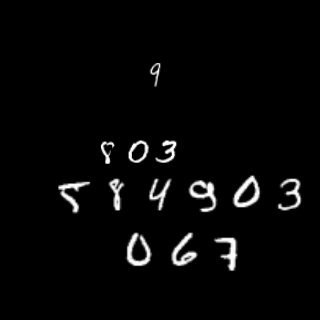 9
803
584903
067